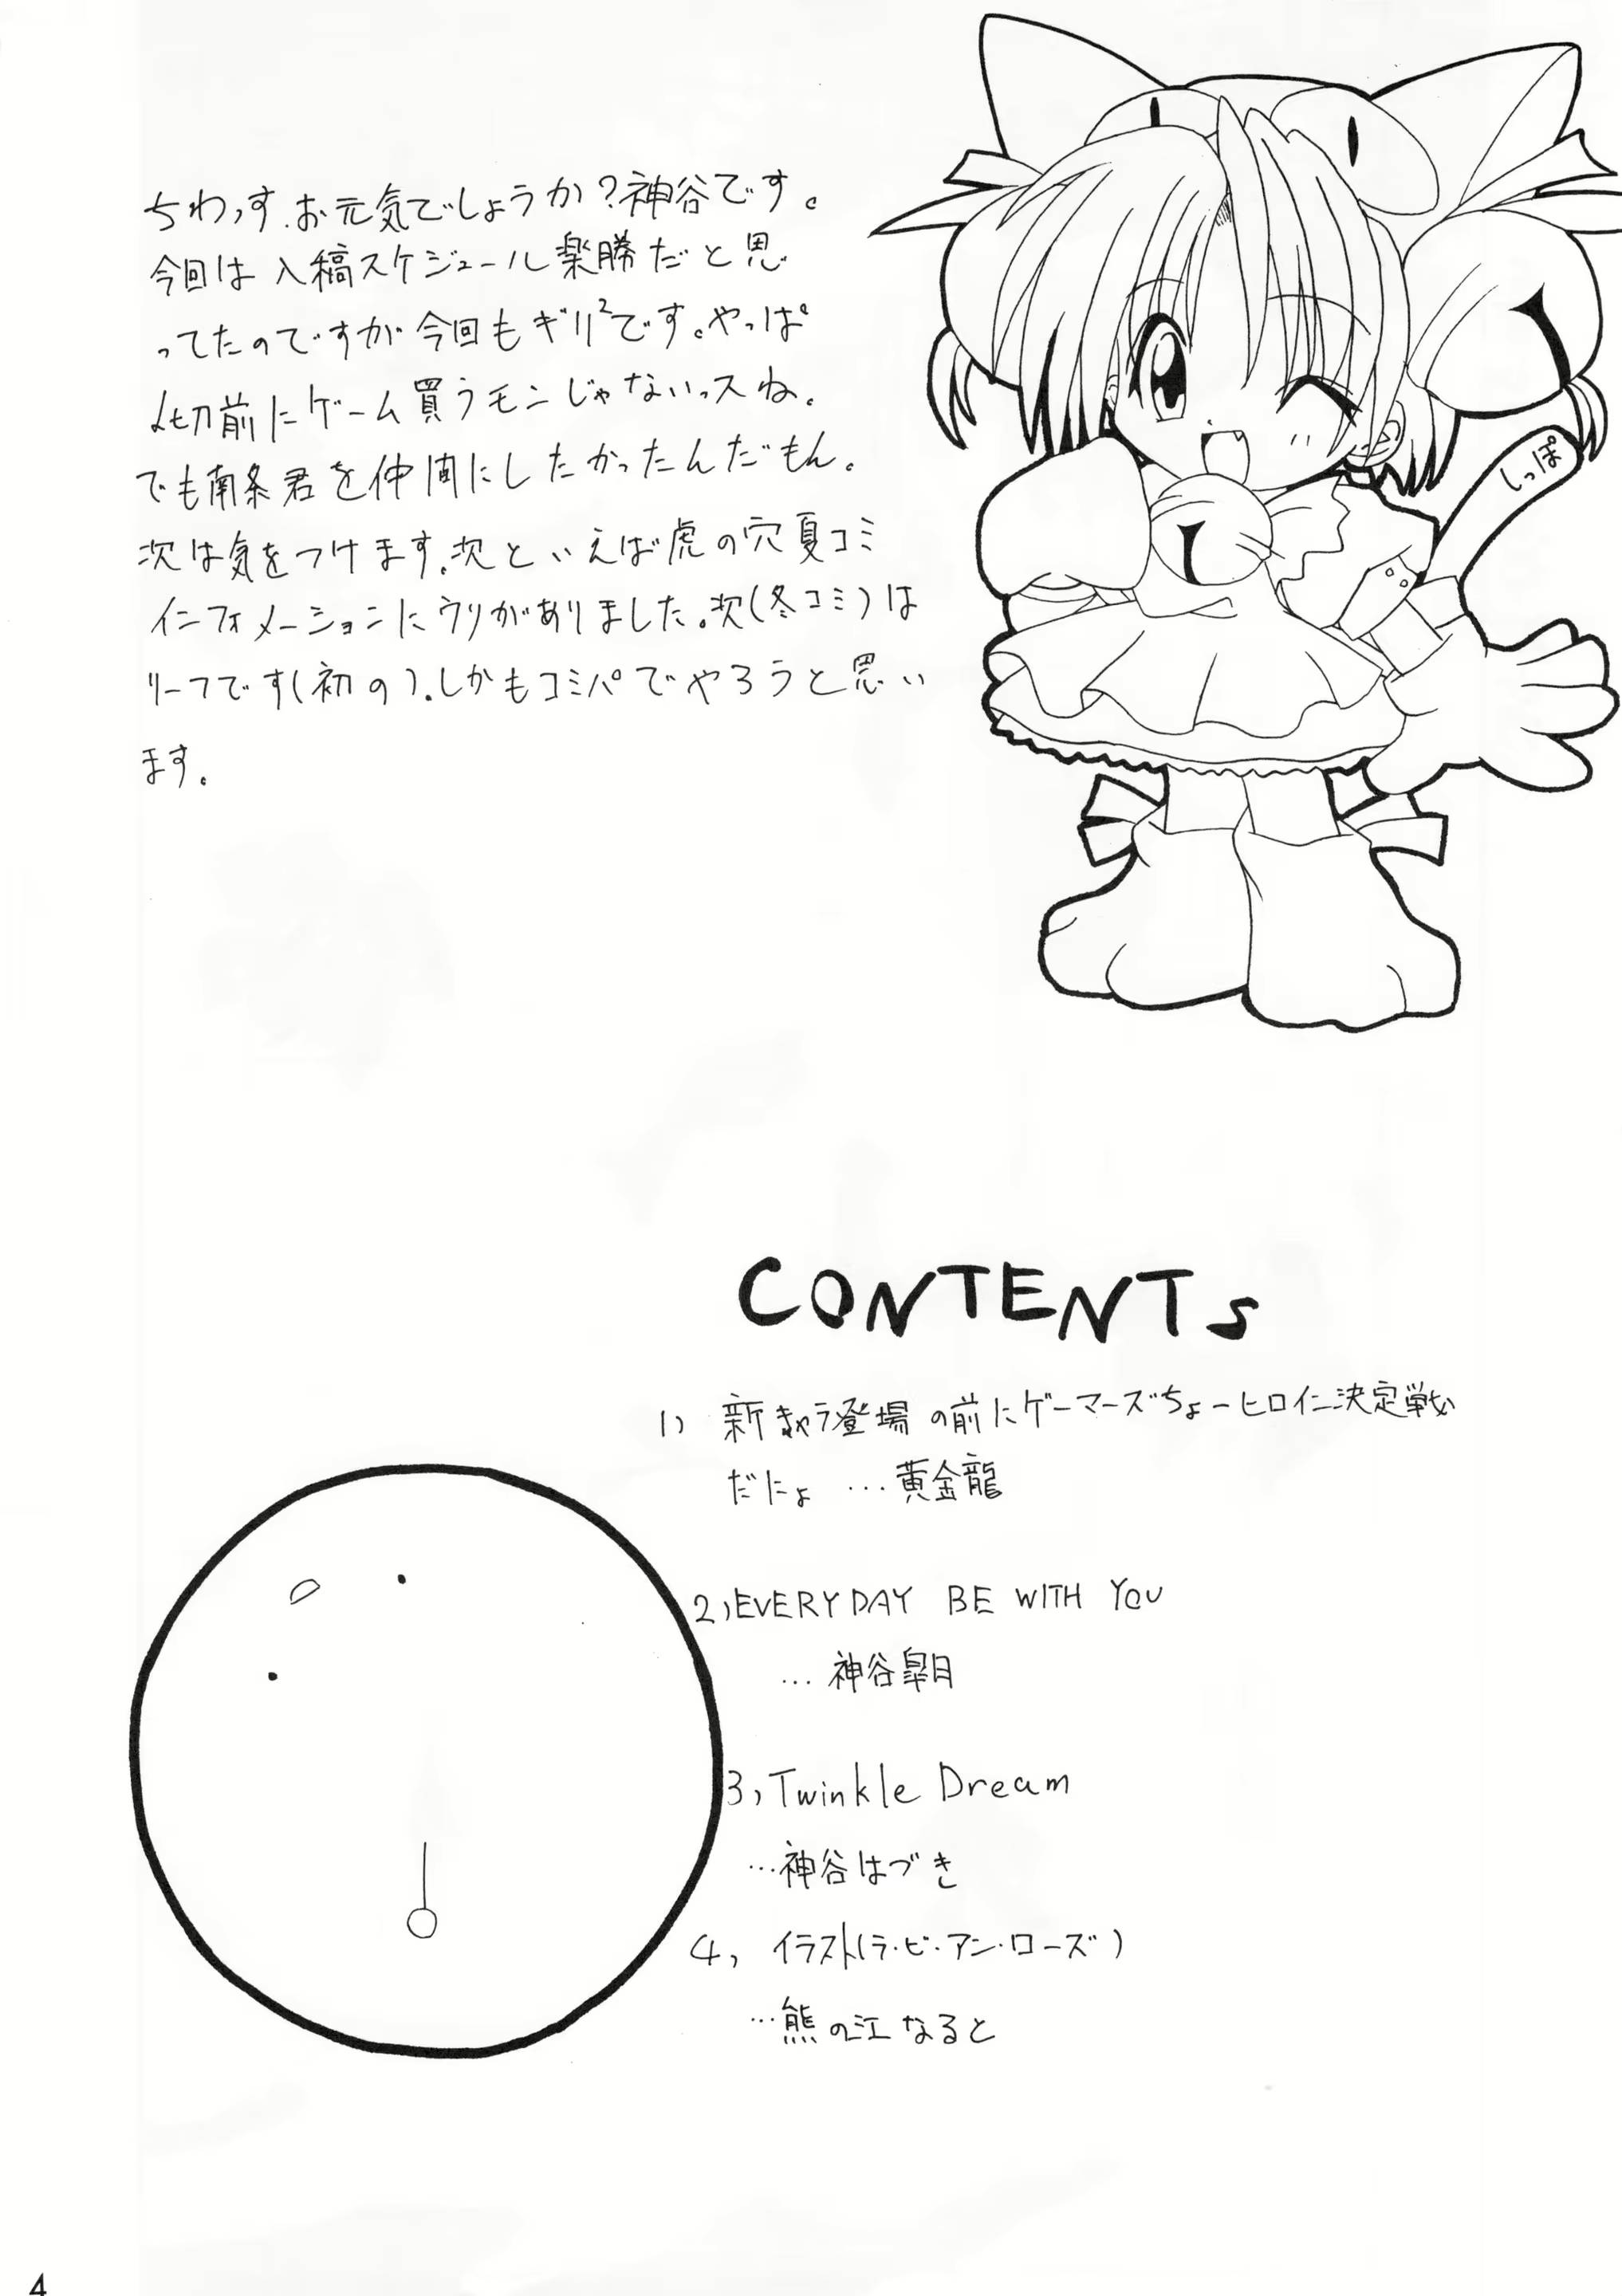 ちわっす.お元気でしょうか?神谷です。
今回は入稿スケジュール楽勝だと思
ってたのですが今回もギリ²です。やっぱ
〆切前にゲーム買うモンじゃないっスね。
でも南条君を仲間にしたかったんだもん。
次は気をつけます.次といえば虎の穴夏コミ
インフォメーションにウリがありました。次(冬コミ)は
リーフです(初の).しかもコミパでやろうと思い
ます。
しっぽ
CONTENTs
1) 新キャラ登場の前にゲーマーズちょーヒロイン決定戦
だにょ …黄金龍
2)EVERYDAY BE WITH YOU
…神谷皐月
3)Twinkle Dream
…神谷はづき
4) イラスト(ラ・ビ・アン・ローズ)
…熊の江なると
4